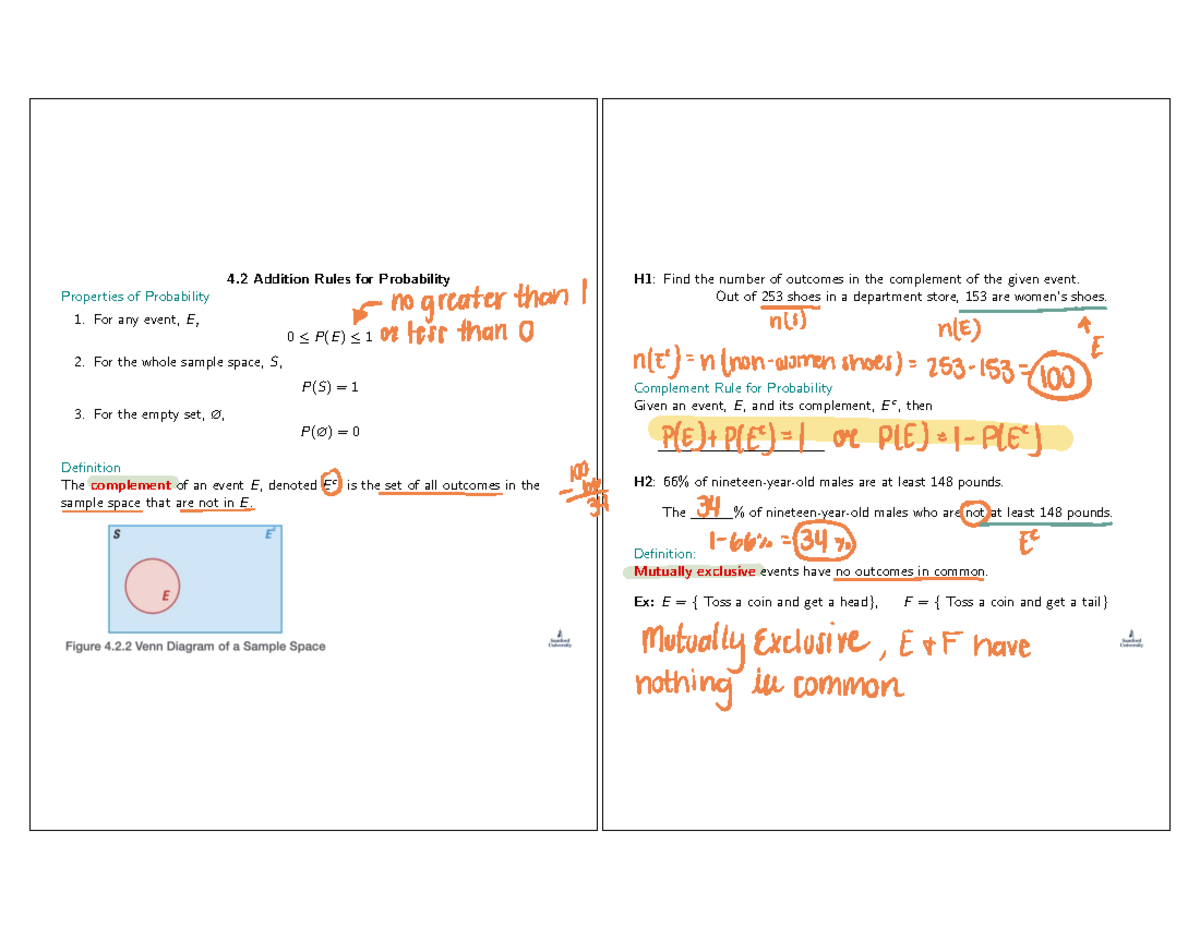 4.2 Addition Rules for Probability
Properties of Probability
no greater than 1
1. For any event, E,
0 ≤ P(E) ≤ 1 or less than 0
2. For the whole sample space, S,
P(S) = 1
3. For the empty set, Ø,
P(Ø) = 0
Definition
The complement of an event E, denoted Eᶜ is the set of all outcomes in the
sample space that are not in E.
100
- 66
34
S Eᶜ
E
Figure 4.2.2 Venn Diagram of a Sample Space
Samford
University
H1: Find the number of outcomes in the complement of the given event.
Out of 253 shoes in a department store, 153 are women's shoes.
n(S) n(E) E
n(Eᶜ) = n(non-women shoes) = 253-153 = 100
Complement Rule for Probability
Given an event, E, and its complement, Eᶜ, then
P(E) + P(Eᶜ) = 1 or P(E) = 1 - P(Eᶜ)
H2: 66% of nineteen-year-old males are at least 148 pounds.
The 34 % of nineteen-year-old males who are not at least 148 pounds.
1-66% = 34% Eᶜ
Definition:
Mutually exclusive events have no outcomes in common.
Ex: E = { Toss a coin and get a head}, F = { Toss a coin and get a tail}
Mutually Exclusive, E & F have
nothing in common
Samford
University